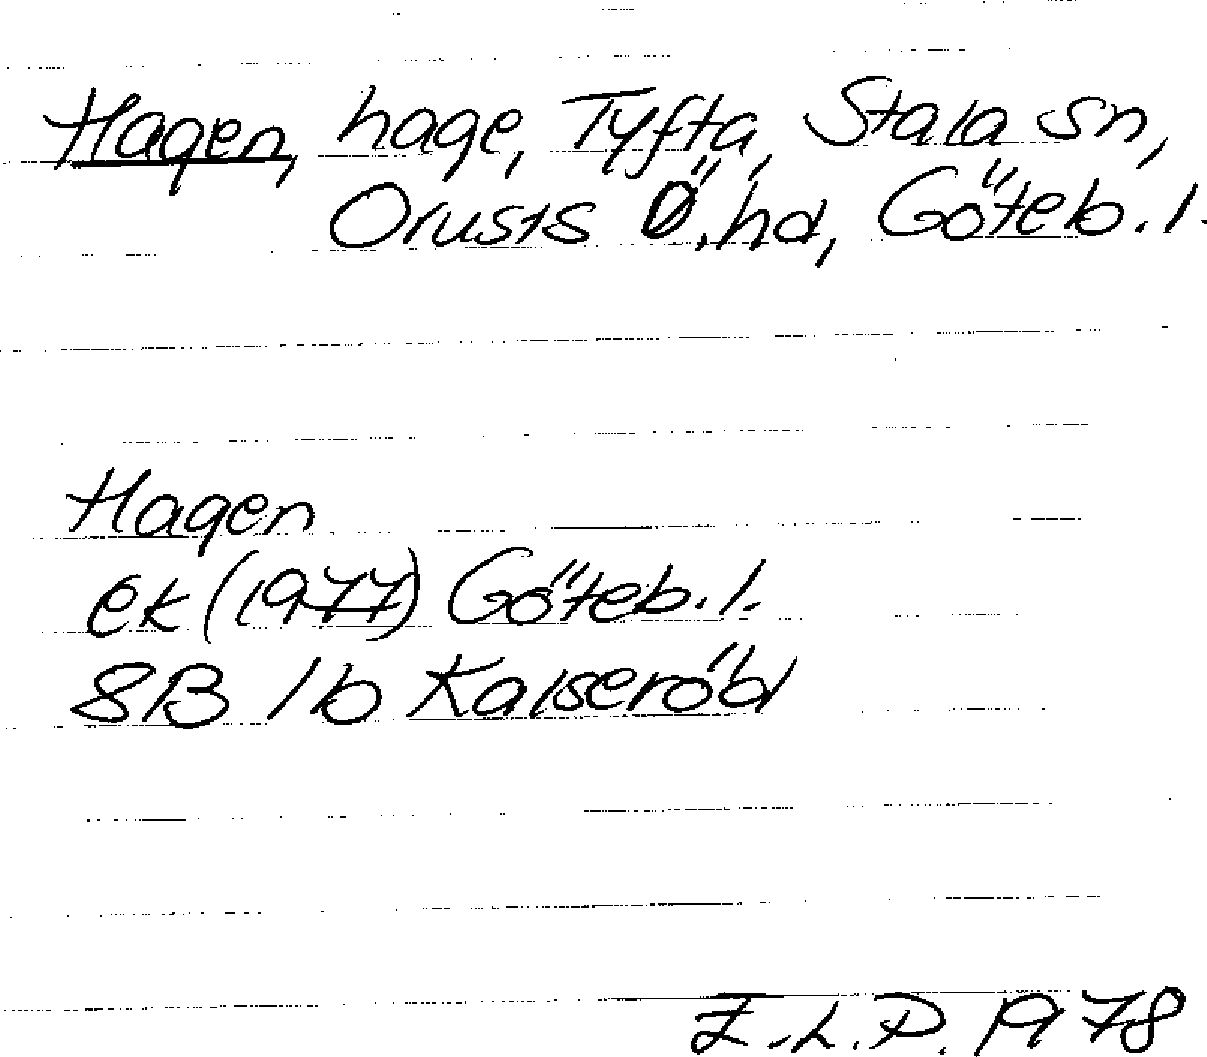 Hagen, hage, Tyfta, Stala sn,
Orusts Ö. hd, Göteb. l.
Hagen
ek (1977) Göteb. l.
8B 1b Kaiseröd
1978